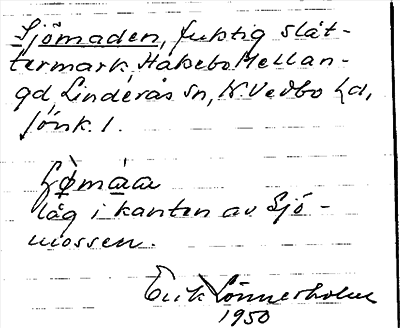 Sjömaden, fuktig slåt-
termark, Håkebo Mellan-
gd, Linderås sn, N. Vedbo hd,
Jönk. l.
låg i kanten av Sjö-
mossen.
Erik Lönnerholm
1950